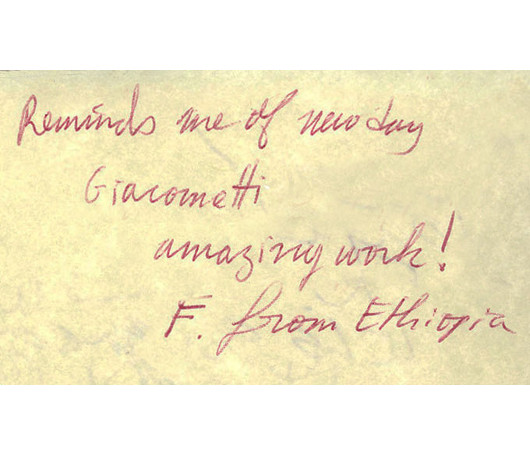 Reminds me of new day
Giacometti
amazing work!
F. from Ethiopia